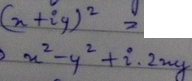 (x + iy)² =
x² - y² + i. 2xy